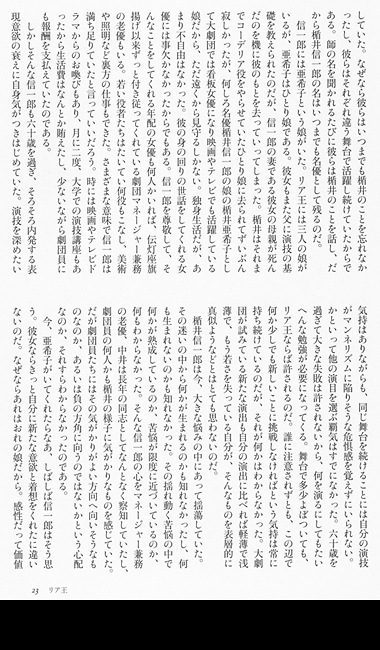 していた。なぜなら彼らはいつまでも楯井のことを忘れなか
ったし、彼らはそれぞれ違う舞台で活躍し続けていたからで
ある。師の名を聞かれるたびに彼らは楯井のことを話し、だ
から楯井信一郎の名はいつまでも名優として残るのだ。
　信一郎には亜希子という娘がいた。リア王には三人の娘が
いるが、亜希子はひとり娘である。彼女もまた父に演技の基
礎を教えられたのだが、信一郎の妻である彼女の母親が死ん
だのを機に彼のもとを去っていってしまった。楯井はそれま
でコーデリア役をやらせていたひとり娘に去られてずいぶん
寂しかったが、何しろ名優楯井信一郎の娘の楯井亜希子とし
て大劇団では看板女優になり映画やテレビでも活躍している
娘だから、ただ遠くから見守るしかない。独身生活だが、あ
まり不自由はなかった。彼の身の回りの世話をしてくれる女
優には事欠かなかったからでもある。信一郎を尊敬して、そ
んなことをしてくれる年配の女優も何人かいれば、伝灯座旗
揚げ以来ずっと付き従ってくれている劇団マネージャー兼務
の老優もいる。若い役者たちはたいてい何役もこなし、美術
や照明など裏方の仕事もできた。さまざまな意味で信一郎は
満ち足りていたと言っていいだろう。時には映画やテレビド
ラマからのお喚びもあり、月に二度、大学での演技講座もあ
ったから生活費はなんとか賄えたし、少ないながら劇団員に
も報酬を支払えていたのである。
　しかしそんな信一郎も六十歳を過ぎ、そろそろ内発する表
現意欲の衰えに自身気がつきはじめていた。演技を深めたい
気持はありながらも、同じ舞台を続けることには自分の演技
がマンネリズムに陥りそうな危惧感を覚えずにいられない。
かといって他の演目を選ぶ覇気はすでになかった。六十歳を
過ぎて大きな失敗は許されないから、何を演るにしてもたい
へんな勉強が必要になってくる。舞台で多少よぼついても、
リア王ならば許されるのだ。誰に注意されずとも、この辺で
何か少しでも新しいことに挑戦しなければという気持は常に
持ち続けているのだが、それが何かはわからなかった。大劇
団が試みている新たな演出も自分の演出に比べれば軽薄で浅
薄で、もう若さを失っている自分が、そんなものを表層的に
真似ようなどとはとても思わないのだ。
　楯井信一郎は今、大きな悩みの中にあって揺蕩していた。
その迷いの中から何かが生まれるのかも知れなかったし、何
も生まれないのかも知れなかった。その揺れ動く苦悩の中で
何かが熟成しているのか、苦悩が限度に近づいているのか、
何もわからなかった。そんな信一郎の心をマネージャー兼務
の老優、中井は長年の同志としてなんとなく察知していたし、
劇団員の何人かも楯井の様子に気がかりなものを感じていた。
だが劇団員たちにはその気がかりがよい方向へ向いそうなも
のなのか、あるいは負の方角に向うのではないかという心配
なのか、それすらわからなかったのだ。
　今、亜希子がいてくれたらなあ、しばしば信一郎はそう思
う。彼女ならきっと自分に新たな意欲と着想をくれたに違い
ないのだ。なぜならあれはおれの娘だから。感性だって価値
23　リア王